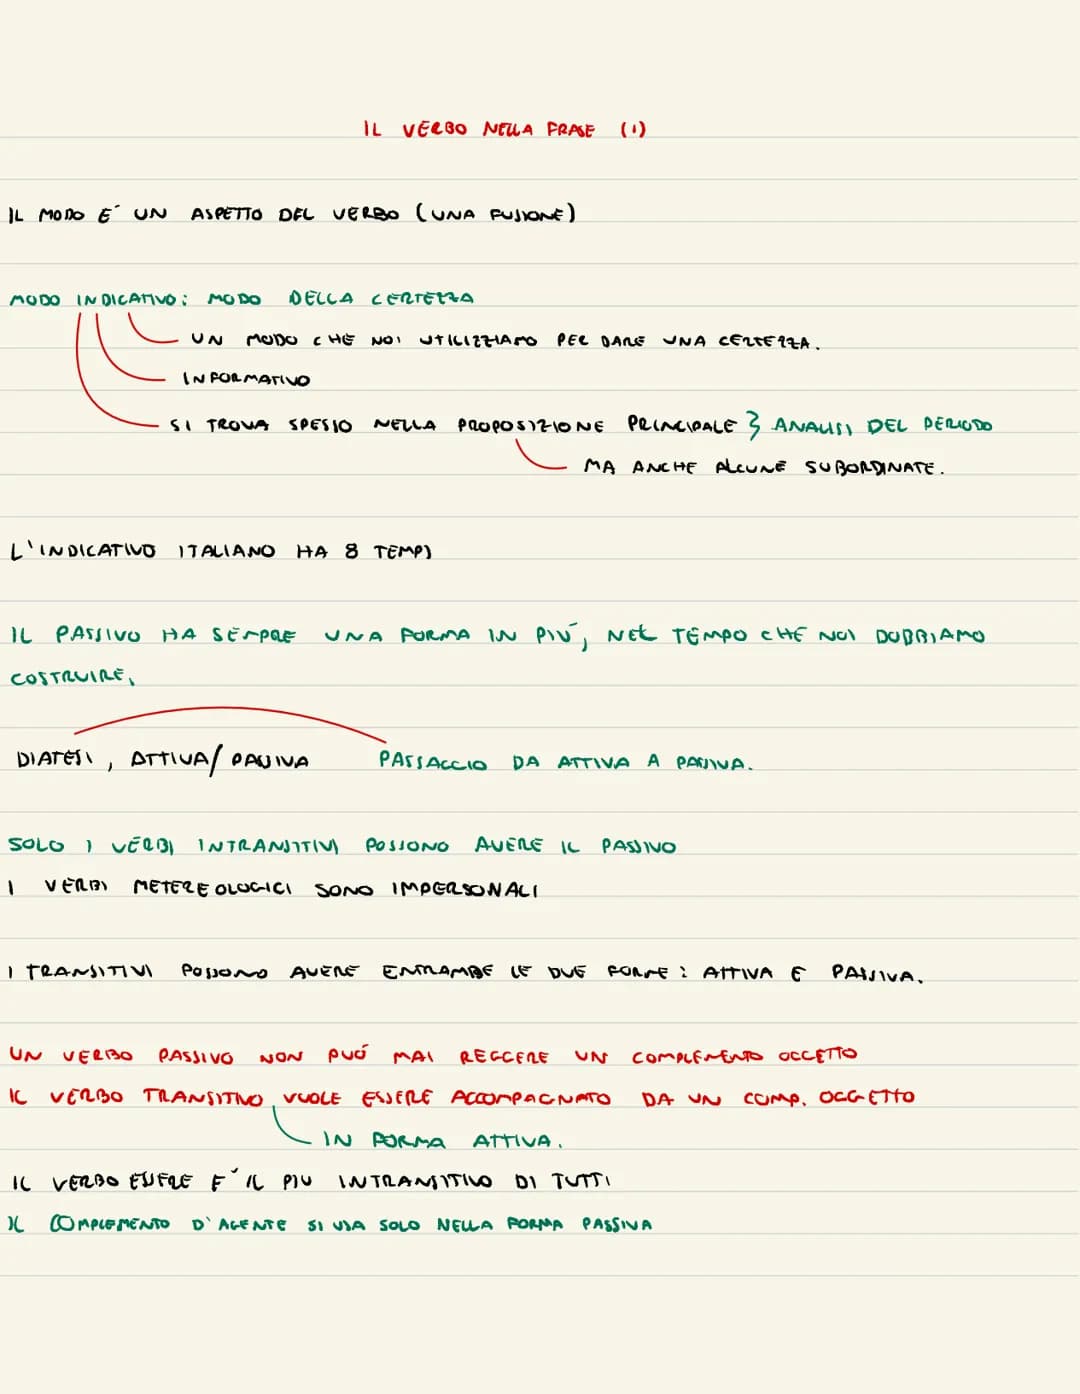 IL VERBO NELLA FRASE (1)
IL MODO E' UN ASPETTO DEL VERBO (UNA FUSIONE)
MODO INDICATIVO: MODO DELLA CERTEZZA
UN MODO CHE NOI UTILIZZIAMO PER DARE UNA CERTEZZA.
INFORMATIVO
SI TROVA SPESSO NELLA PROPOSIZIONE PRINCIPALE } ANALISI DEL PERIODO
MA ANCHE ALCUNE SUBORDINATE.
L'INDICATIVO ITALIANO HA 8 TEMPI
IL PASSIVO HA SEMPRE UNA FORMA IN PIÚ, NEL TEMPO CHE NOI DOBBIAMO
COSTRUIRE,
DIATESI, ATTIVA/PASSIVA PASSAGGIO DA ATTIVA A PASSIVA.
SOLO I VERBI INTRANSITIVI POSSONO AVERE IL PASSIVO
I VERBI METEREOLOGICI SONO IMPERSONALI
I TRANSITIVI POSSONO AVERE ENTRAMBE LE DUE FORME: ATTIVA E PASSIVA.
UN VERBO PASSIVO NON PUÓ MAI REGGERE UN COMPLEMENTO OGGETTO
IL VERBO TRANSITIVO VUOLE ESSERE ACCOMPAGNATO DA UN COMP. OGGETTO
IN FORMA ATTIVA.
IL VERBO ESSERE E' IL PIU INTRANSITIVO DI TUTTI
IL COMPLEMENTO D'AGENTE SI USA SOLO NELLA FORMA PASSIVA